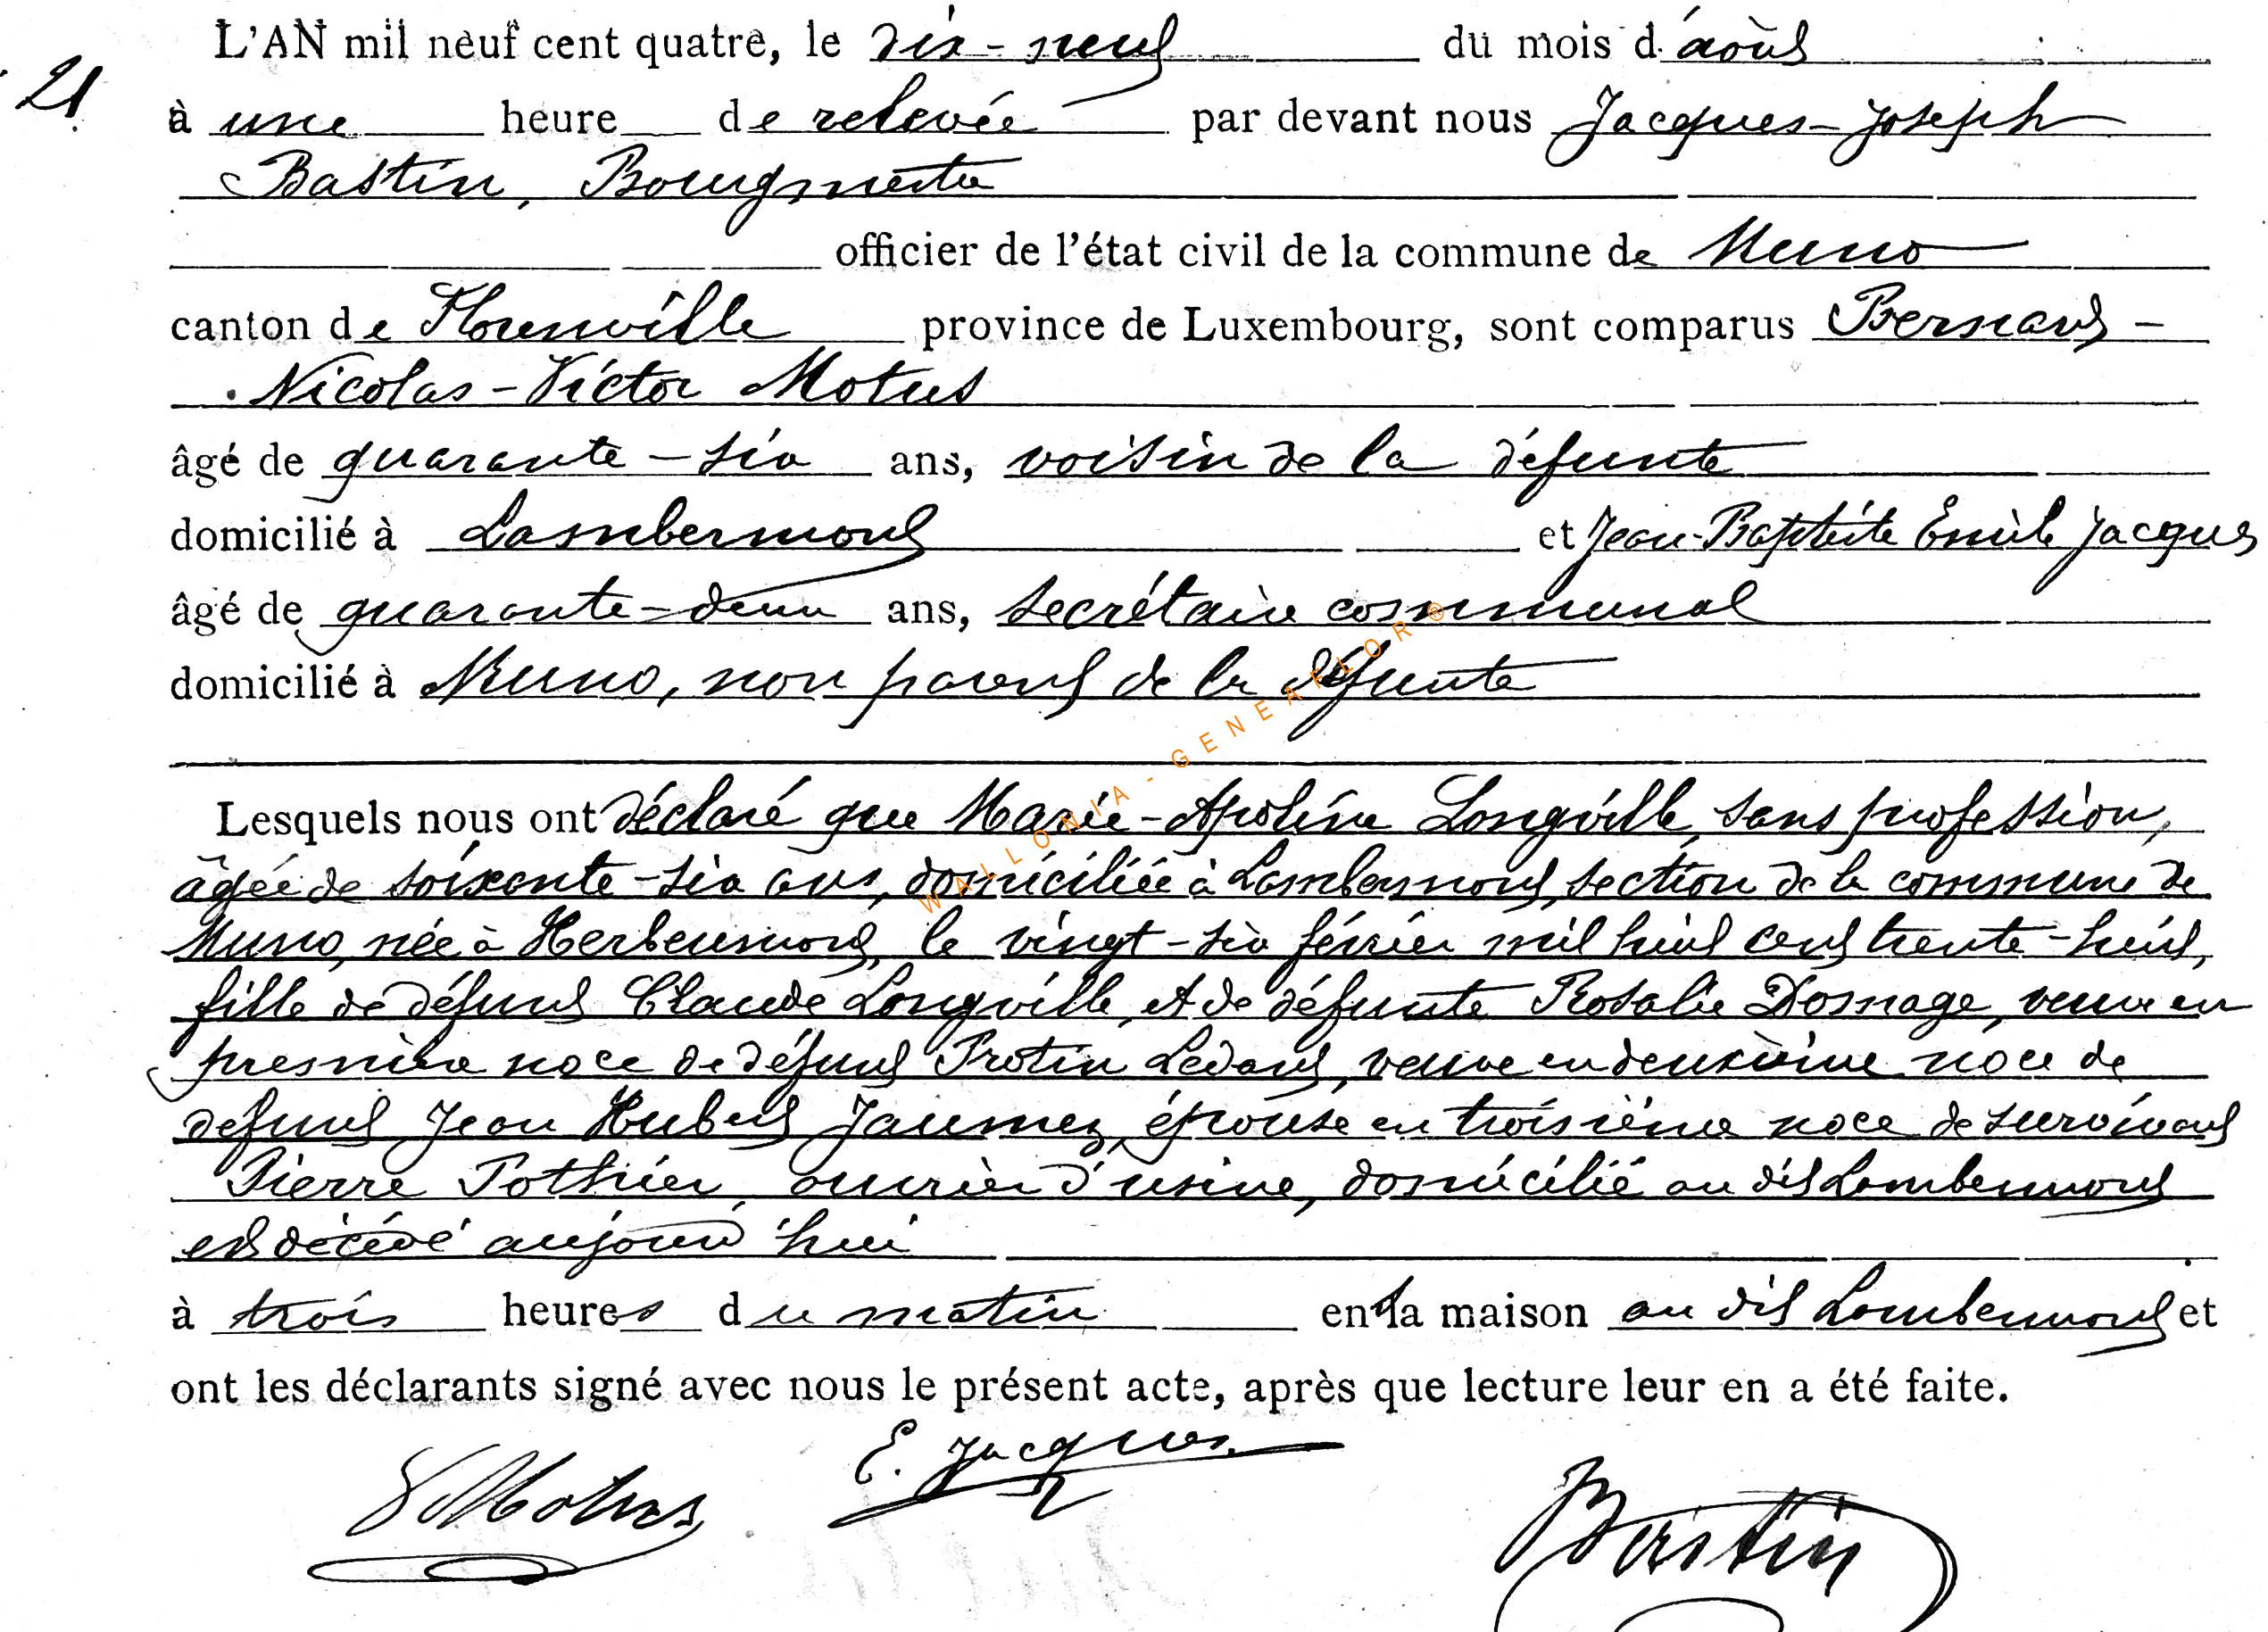 L'AN mil neuf cent quatre, le dix-neuf du mois d'août
21
à une heure de relevée par devant nous Jacques-Joseph
Bastin, Bourgmestre
officier de l'état civil de la commune de Muno
canton de Florenville province de Luxembourg, sont comparus Bernard-
Nicolas-Victor Motus
âgé de quarante-six ans, voisin de la défunte
domicilié à Lambermont et Jean-Baptiste Emile Jacques
âgé de quarante-deux ans, secrétaire communal
domicilié à Muno, non parent de la défunte
Lesquels nous ont déclaré que Marie-Apoline Longville, sans profession,
âgée de soixante-six ans, domiciliée à Lambermont, section de la commune de
Muno, née à Herbeumont, le vingt-six février mil huit cent trente-huit,
fille de défunt Claude Longville, et de défunte Rosalie Domage, veuve en
première noce de défunt Protin Ledent, veuve en deuxième noce de
défunt Jean Hubert Jaumez, épouse en troisième noce de survivant
Pierre Pothier, ouvrier d'usine, domicilié au dit Lambermont
est décédé aujourd'hui
à trois heures du matin en la maison au dit Lambermont et
ont les déclarants signé avec nous le présent acte, après que lecture leur en a été faite.
V Motus
E. Jacques
Bastin
WALLONIA-GENEAFLOR©